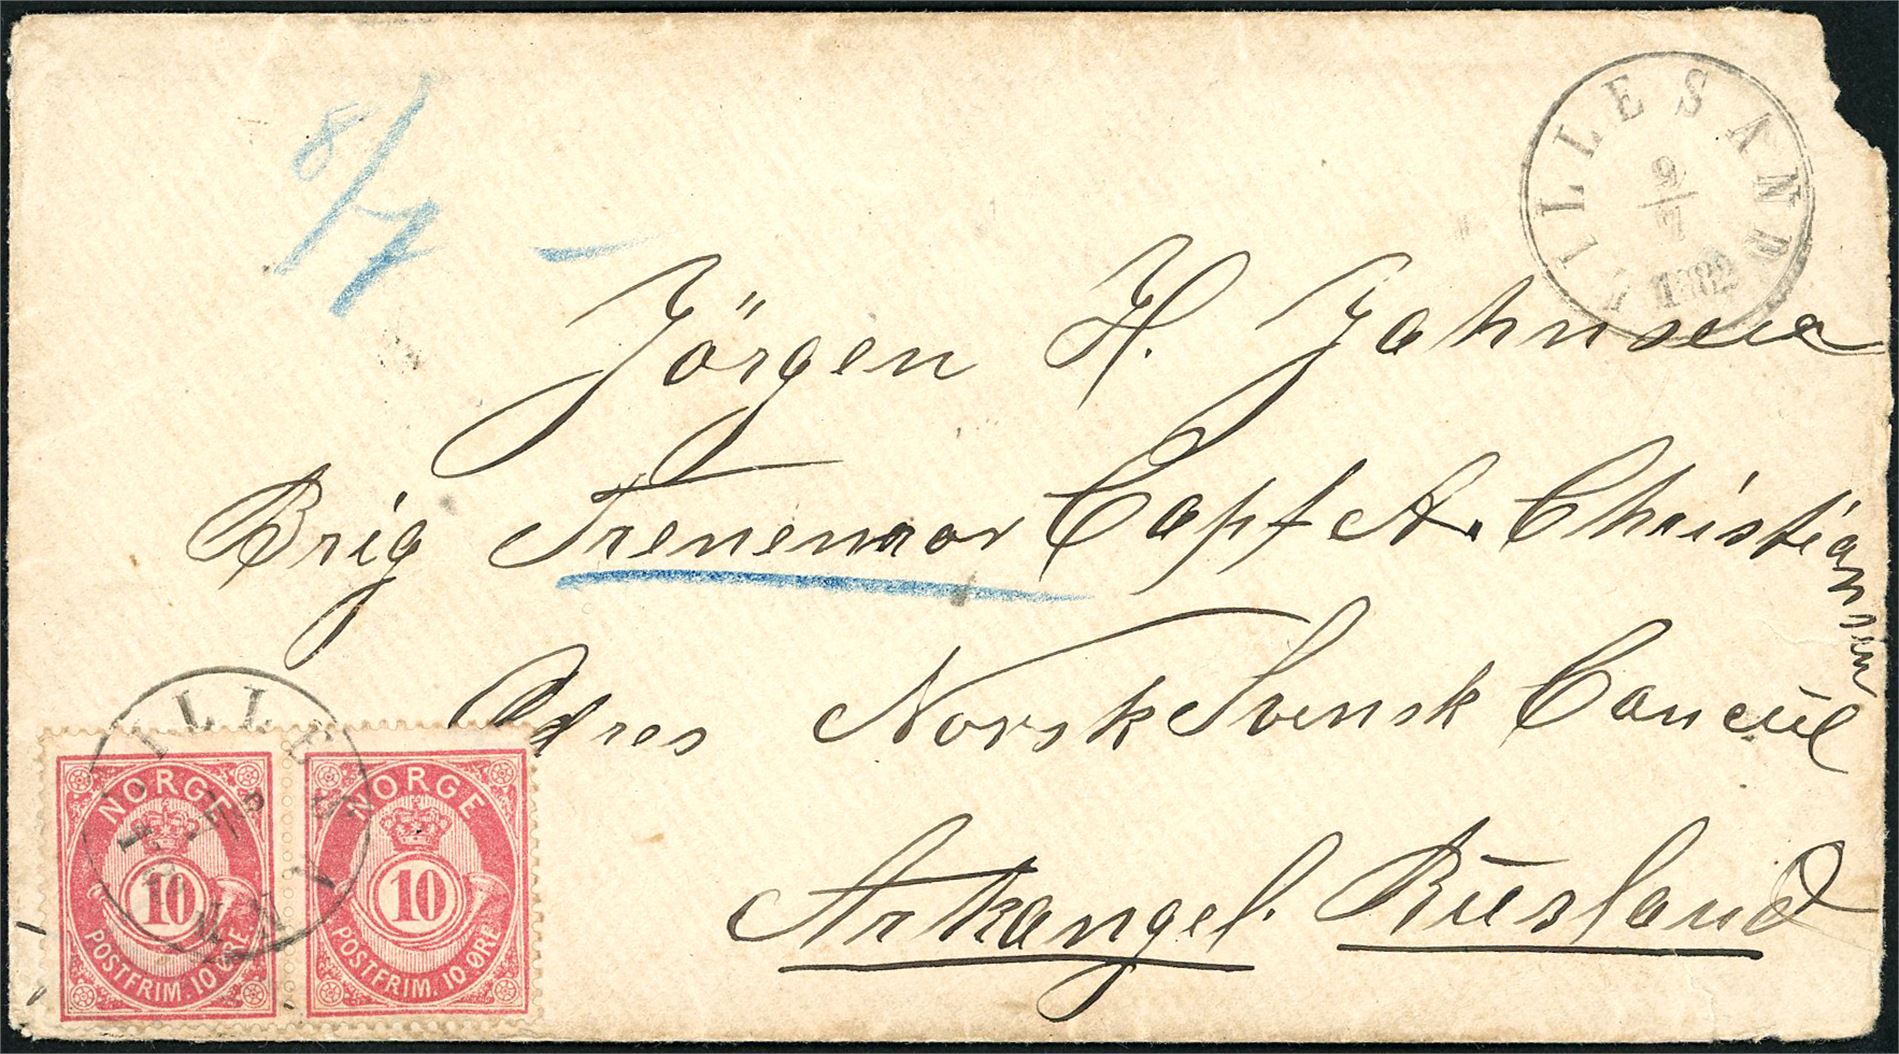 LILLESAND
9/7
1882
8/7 –
Jörgen H. Jahnsen
Brig Trenemor Capt A. Christiansen
Adres Norsk Svensk Concül
Arkangel. Rüsland
LILLESAND
NORGE
10
POSTFRIM. 10 ØRE
NORGE
10
POSTFRIM. 10 ØRE